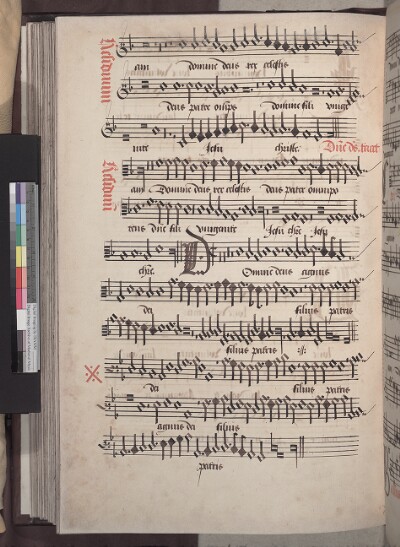 Residuum
am domine deus rex celestis
deus pater omps domine fili unige
nite Jesu christe.
Residuum
am Domine deus rex celestis deus pater omnipo
tens dne fili unigenite Jesu chre Jesu
chre. Domine deus agnus
dei filius patris
filius patris
dei filius patris
agnus dei filius
patris